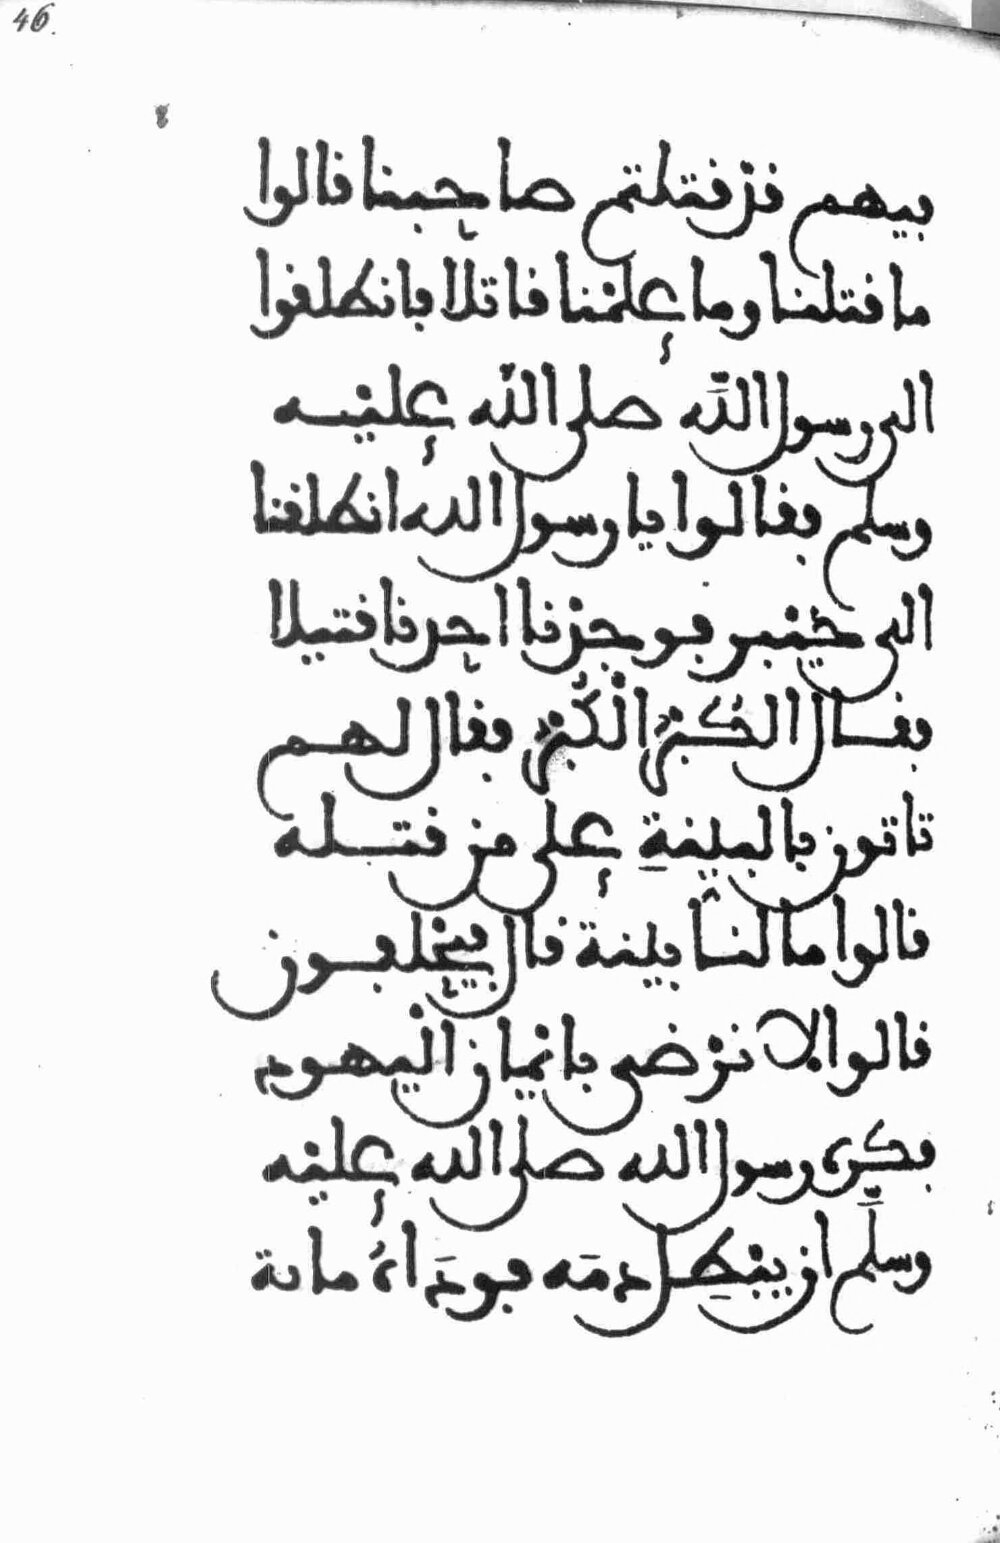 46.
فيهم قد قتلتم صاحبنا قالوا
ما قتلنا وما علمنا قاتلا فانطلقوا
الى رسول الله صلى الله عليه
وسلم فقالوا يا رسول الله انطلقنا
الى خيبر فوجدنا احدنا قتيلا
فقال الكُبْرَ الْكُبْرَ فقال لهم
تاتون بالبينةِ على من قتله
قالوا ما لنا بينة قال فيحلفون
قالوا لا نرضى بأيمان اليهود
فكره رسول الله صلى الله عليه
وسلَّم ان يبْطِل دمَه فودَاهُ مائة